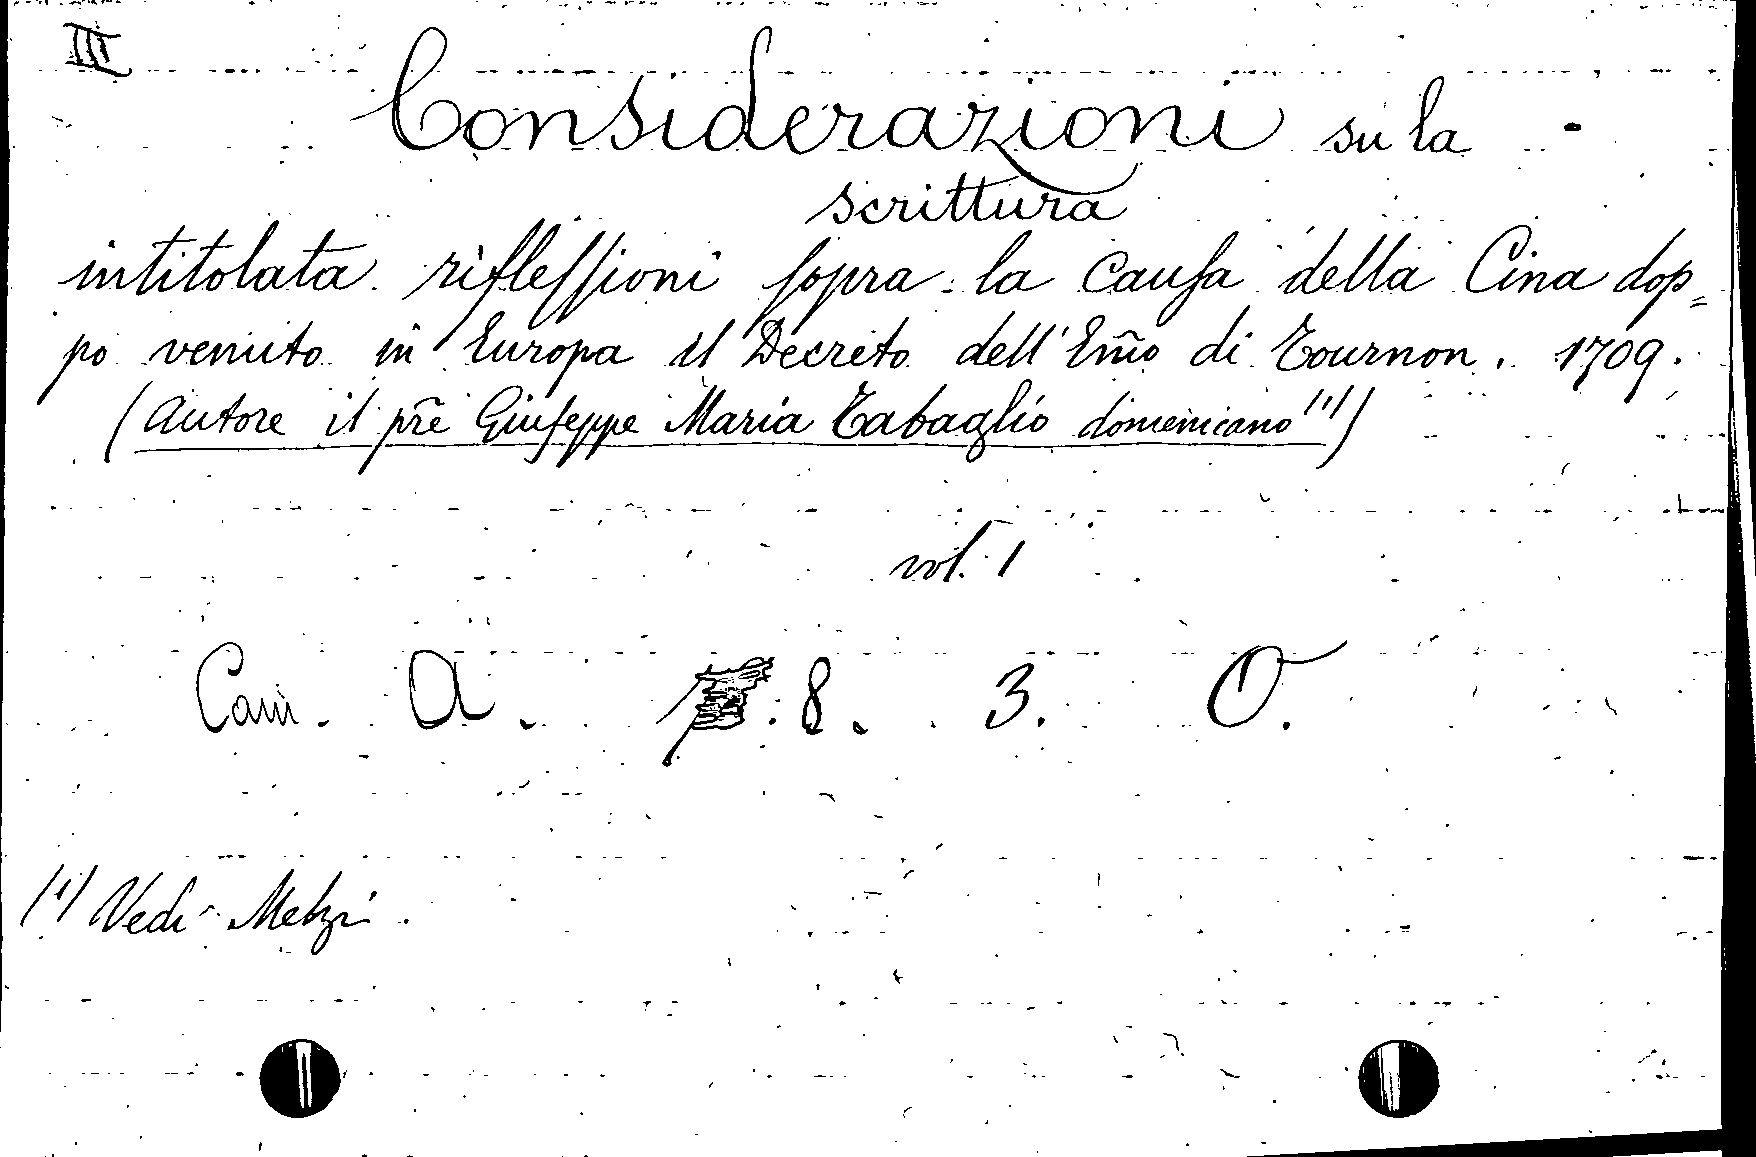 III
Considerazioni su la
scrittura
intitolata rifleſſioni ſopra la cauſa della Cina dop=
po venuto in Europa il Decreto dell'Em̃o di Tournon. 1709.
(Autore il pr̃e Giuſeppe Maria Tabaglio domenicano (1))
vol. 1
Cam. A. 8. 3. O.
(1) Vedi Melzi.